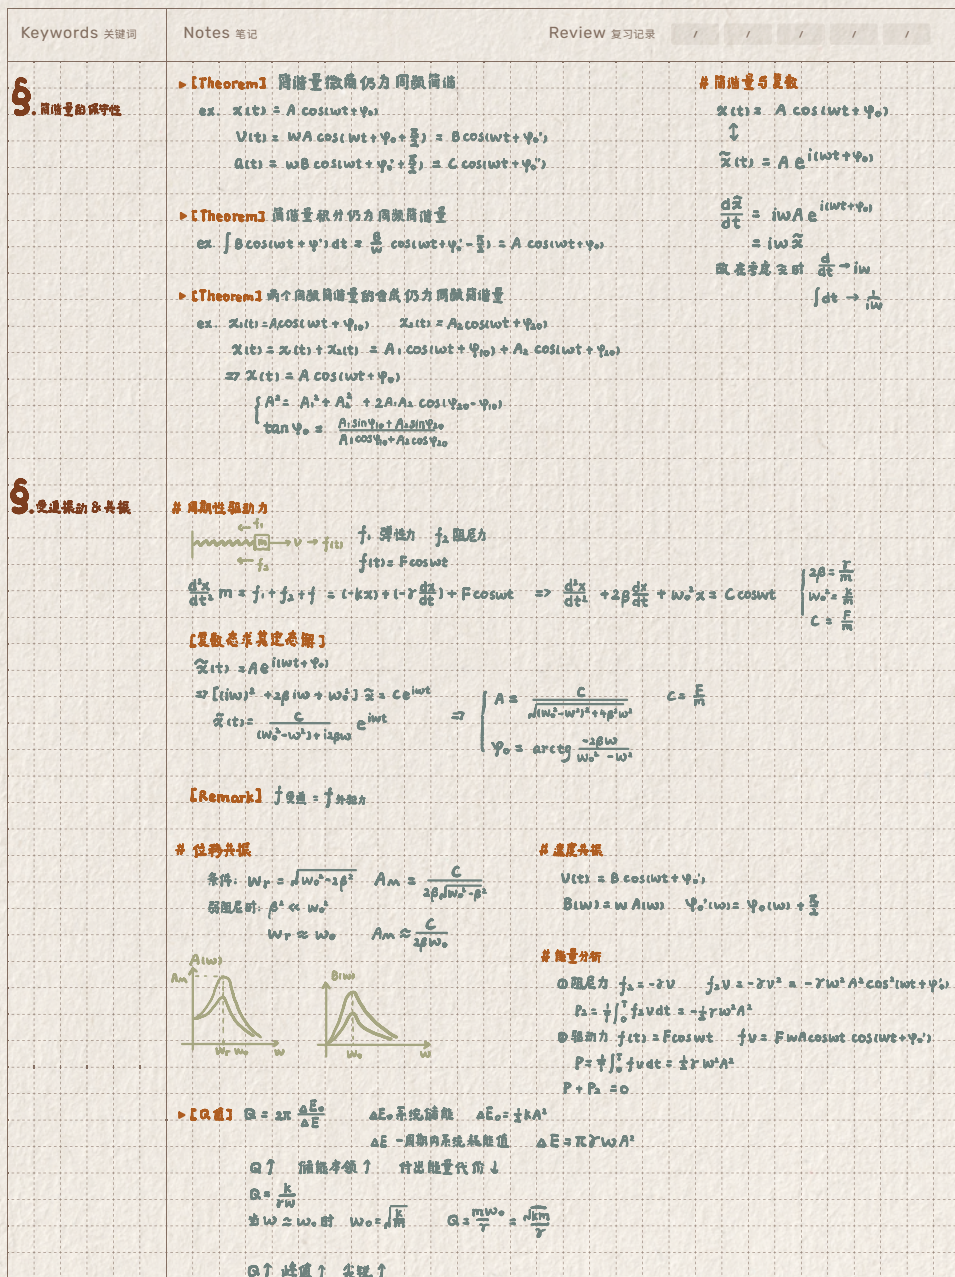 Keywords 关键词
Notes 笔记
Review 复习记录 / / / / /
§. 简谐量的保守性
▸ [Theorem] 简谐量微商仍为同频简谐
ex. x(t) = A cos(wt+φ₀)
V(t) = WA cos(wt+φ₀+π/2) = B cos(wt+φ₀')
a(t) = wB cos(wt+φ₀'+π/2) = C cos(wt+φ₀'')
▸ [Theorem] 简谐量积分仍为同频简谐量
ex ∫B cos(wt+φ')dt = B/w cos(wt+φ₀'-π/2) = A cos(wt+φ₀)
▸ [Theorem] 两个同频简谐量的合成仍为同频简谐量
ex. x₁(t)=A cos(wt+φ₁₀) x₂(t)=A₂ cos(wt+φ₂₀)
x(t) = x₁(t)+x₂(t) = A₁ cos(wt+φ₁₀)+A₂ cos(wt+φ₂₀)
=> x(t) = A cos(wt+φ₀)
{ A² = A₁²+A₂²+2A₁A₂ cos(φ₂₀-φ₁₀)
tan φ₀ = (A₁sinφ₁₀+A₂sinφ₂₀)/(A₁cosφ₁₀+A₂cosφ₂₀)
# 简谐量与复数
x(t) = A cos(wt+φ₀)
↕
x̃(t) = A e^i(wt+φ₀)
dx̃/dt = iwA e^i(wt+φ₀)
= iw x̃
故在考虑 时 d/dt → iw
∫dt → 1/iw
§. 受迫振动 & 共振
# 周期性驱动力
← f₁
m → v → f(t)
← f₂
f₁ 弹性力 f₂ 阻尼力
f(t) = F cos wt
d²x/dt² m = f₁+f₂+f = (-kx)+(-γ dx/dt)+F cos wt => d²x/dt² + 2β dx/dt + w₀²x = C cos wt
{ 2β = γ/m
w₀² = k/m
C = F/m
[复数态求其定态解]
x̃(t) = A e^i(wt+φ₀)
=> [(iw)²+2βiw+w₀²] x̃ = C e^iwt
x̃(t) = C/((w₀²-w²)+i2βw) e^iwt
=> { A = C/√((w₀²-w²)²+4β²w²) C = F/m
φ₀ = arctg -2βw/(w₀²-w²)
[Remark] f受迫 = f外驱力
# 位移共振
条件: wr = √(w₀²-2β²) Am = C/(2β√(w₀²-β²))
弱阻尼时: β² ≪ w₀²
wr ≈ w₀ Am ≈ C/2βw₀
A(w)
Am
wr w₀ w
B(w)
w₀ w
# 速度共振
V(t) = B cos(wt+φ₀')
B(w) = w A(w) φ₀'(w) = φ₀(w)+π/2
# 能量分析
① 阻尼力 f₂ = -γv f₂v = -γv² = -γw²A²cos²(wt+φ₀')
P₂ = 1/T ∫₀ᵀ f₂vdt = -1/2 γw²A²
② 驱动力 f(t) = F cos wt fv = FwA cos wt cos(wt+φ₀')
P = 1/T ∫₀ᵀ fvdt = 1/2 γw²A²
P+P₂ = 0
▸ [Q值] Q = 2π ΔE₀/ΔE ΔE₀ 系统储能 ΔE₀ = 1/2 kA²
ΔE 一周期内系统耗能值 ΔE = πγwA²
Q↑ 储能本领↑ 付出能量代价↓
Q = k/γw
当 w ≃ w₀ 时 w₀ = √(k/m) Q = mw₀/γ = √(km)/γ
Q↑ 峰值↑ 尖锐↑